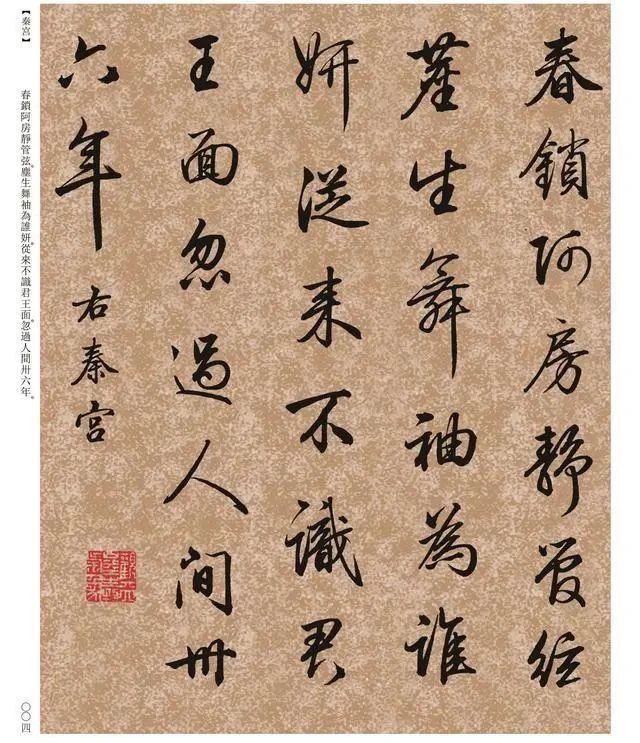 春鎖阿房靜管弦
塵生舞袖為誰
妍從來不識君
王面忽過人間卅
六年
右秦宮
【秦宮】
春鎖阿房靜管弦。塵生舞袖為誰妍。從來不識君王面。忽過人間卅六年。
〇〇四